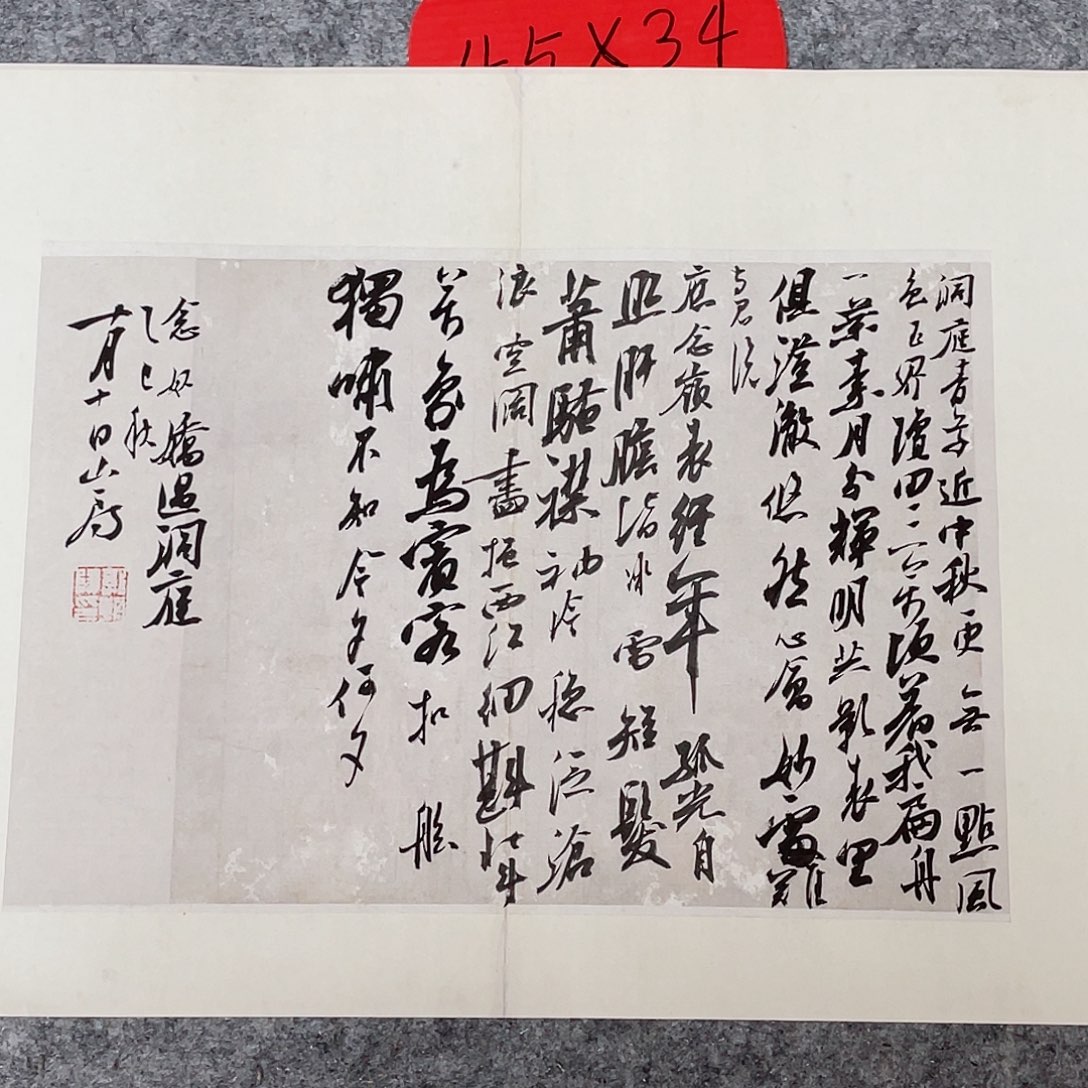 45X34
洞庭青草近中秋更無一點風
色玉界瓊田三万頃著我扁舟
一葉素月分輝明共影表里
俱澄澈悠然心會妙處難
与君説
應念嶺表經年孤光自
照肝膽皆冰雪短髮
蕭騷襟袖冷穩泛滄
浪空闊盡挹西江細斟北斗
萬象為賓客扣舷
獨嘯不知今夕何夕
念奴嬌過洞庭
乙巳秋
十月十日山房